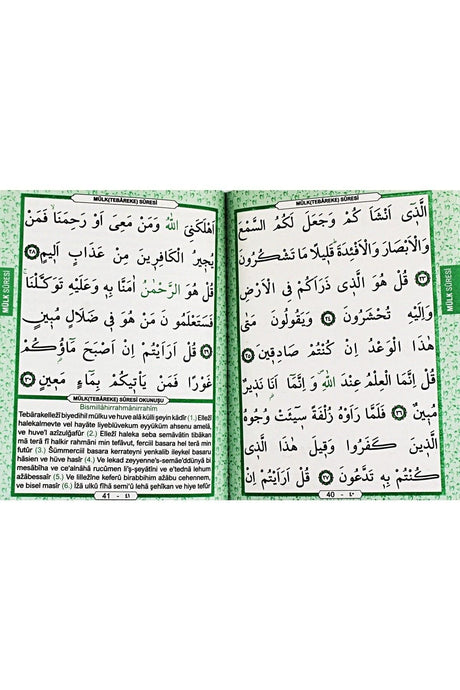 MÜLK(TEBÂREKE) SÛRESİ
MÜLK SÛRESİ
الَّذٖٓى اَنْشَاَ كُمْ وَجَعَلَ لَكُمُ السَّمْعَ
وَالْاَبْصَارَ وَالْاَفْـِٔدَةَ قَلٖيلًا مَا تَشْكُرُونَ
﴿٢٣﴾ قُلْ هُوَ الَّذٖى ذَرَاَكُمْ فِى الْاَرْضِ
وَاِلَيْهِ تُحْشَرُونَ ﴿٢٤﴾ وَيَقُولُونَ مَتٰى
هٰذَا الْوَعْدُ اِنْ كُنْتُمْ صَادِقٖينَ ﴿٢٥﴾
قُلْ اِنَّمَا الْعِلْمُ عِنْدَ اللّٰهِ وَ اِنَّمَٓا اَنَا۬ نَذٖيرٌ
مُبٖينٌ ﴿٢٦﴾ فَلَمَّا رَاَوْهُ زُلْفَةً سٖٓيـَٔتْ وُجُوهُ
الَّذٖينَ كَفَرُوا وَقٖيلَ هٰذَا الَّذٖى
كُنْتُمْ بِهٖ تَدَّعُونَ ﴿٢٧﴾ قُلْ اَرَاَيْتُمْ اِنْ
40 - ٤٠
MÜLK(TEBÂREKE) SÛRESİ
MÜLK SÛRESİ
اَهْلَكَنِىَ اللّٰهُ وَمَنْ مَعِىَ اَوْ رَحِمَنَا فَمَنْ
يُجٖيرُ الْكَافِرٖينَ مِنْ عَذَابٍ اَلٖيمٍ ﴿٢٨﴾
قُلْ هُوَ الرَّحْمٰنُ اٰمَنَّا بِهٖ وَعَلَيْهِ تَوَكَّلْنَا
فَسَتَعْلَمُونَ مَنْ هُوَ فٖى ضَلَالٍ مُبٖينٍ
﴿٢٩﴾ قُلْ اَرَاَيْتُمْ اِنْ اَصْبَحَ مَٓاؤُ۬كُمْ
غَوْرًا فَمَنْ يَاْتٖيكُمْ بِمَٓاءٍ مَعٖينٍ ﴿٣٠﴾
MÜLK(TEBÂREKE) SÛRESİ OKUNUŞU
Bismillâhirrahmânirrahîm
Tebârakellezî biyedihil mülku ve huve alâ külli şeyin kâdîr (1.) Ellezî
halekalmevte vel hayâte liyeblüvekum eyyüküm ahsenu amelâ,
ve huve'l azîzulğafûr (2.) Ellezî haleka seba semâvâtin tibâkan
mâ terâ fî halkir rahmâni min tefâvüt, fercîil basara hel terâ min
futûr (3.) Sümmerciil basara kerrateyni yenkalib ileykel basaru
hâsien ve hüve hasîr (4.) Ve lekad zeyyenne's-semâeddünyâ bi
mesâbîha ve ce'alnâhâ rucûmen li'ş-şeyâtîni ve e'tednâ lehum
azâbessaîr (5.) Ve lillezîne keferû birabbihim azâbu cehennem,
ve bisel masîr (6.) İzâ ulkû fîhâ semi'û lehâ şehîkan ve hiye tefûr
41 - ٤١